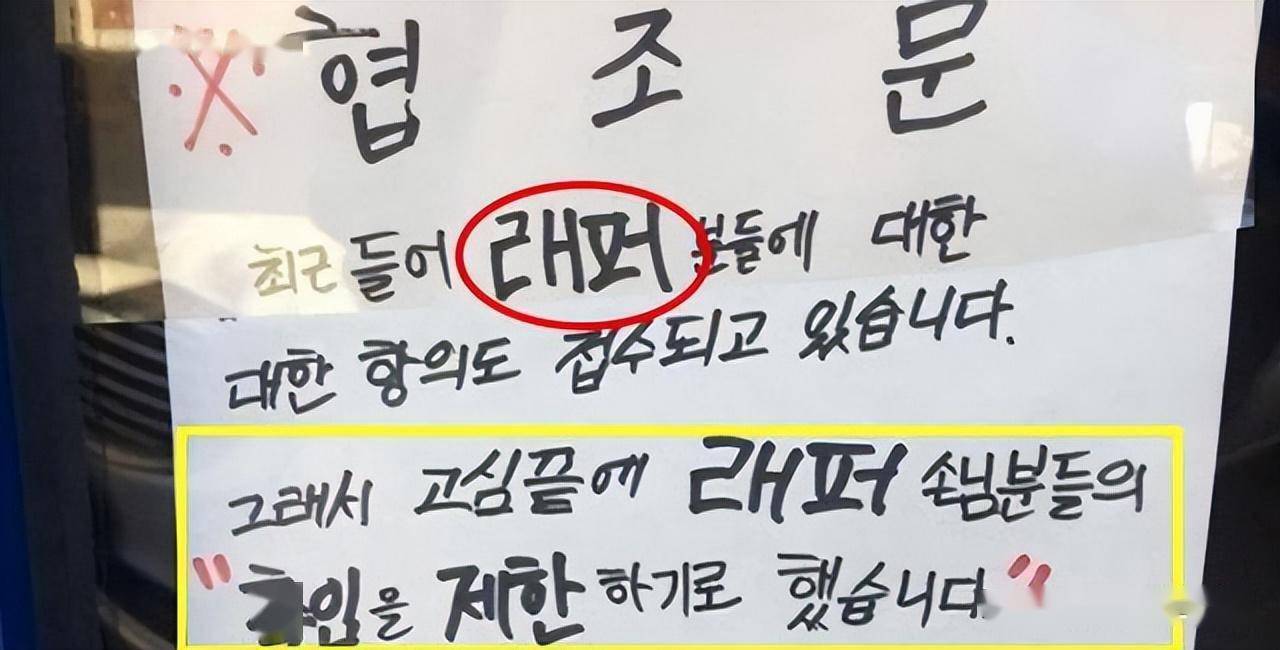 ※ 협 조 문
최근 들어 래퍼 분들에 대한
대한 항의도 접수되고 있습니다.
그래서 고심끝에 래퍼 손님분들의
"출입을 제한 하기로 했습니다"